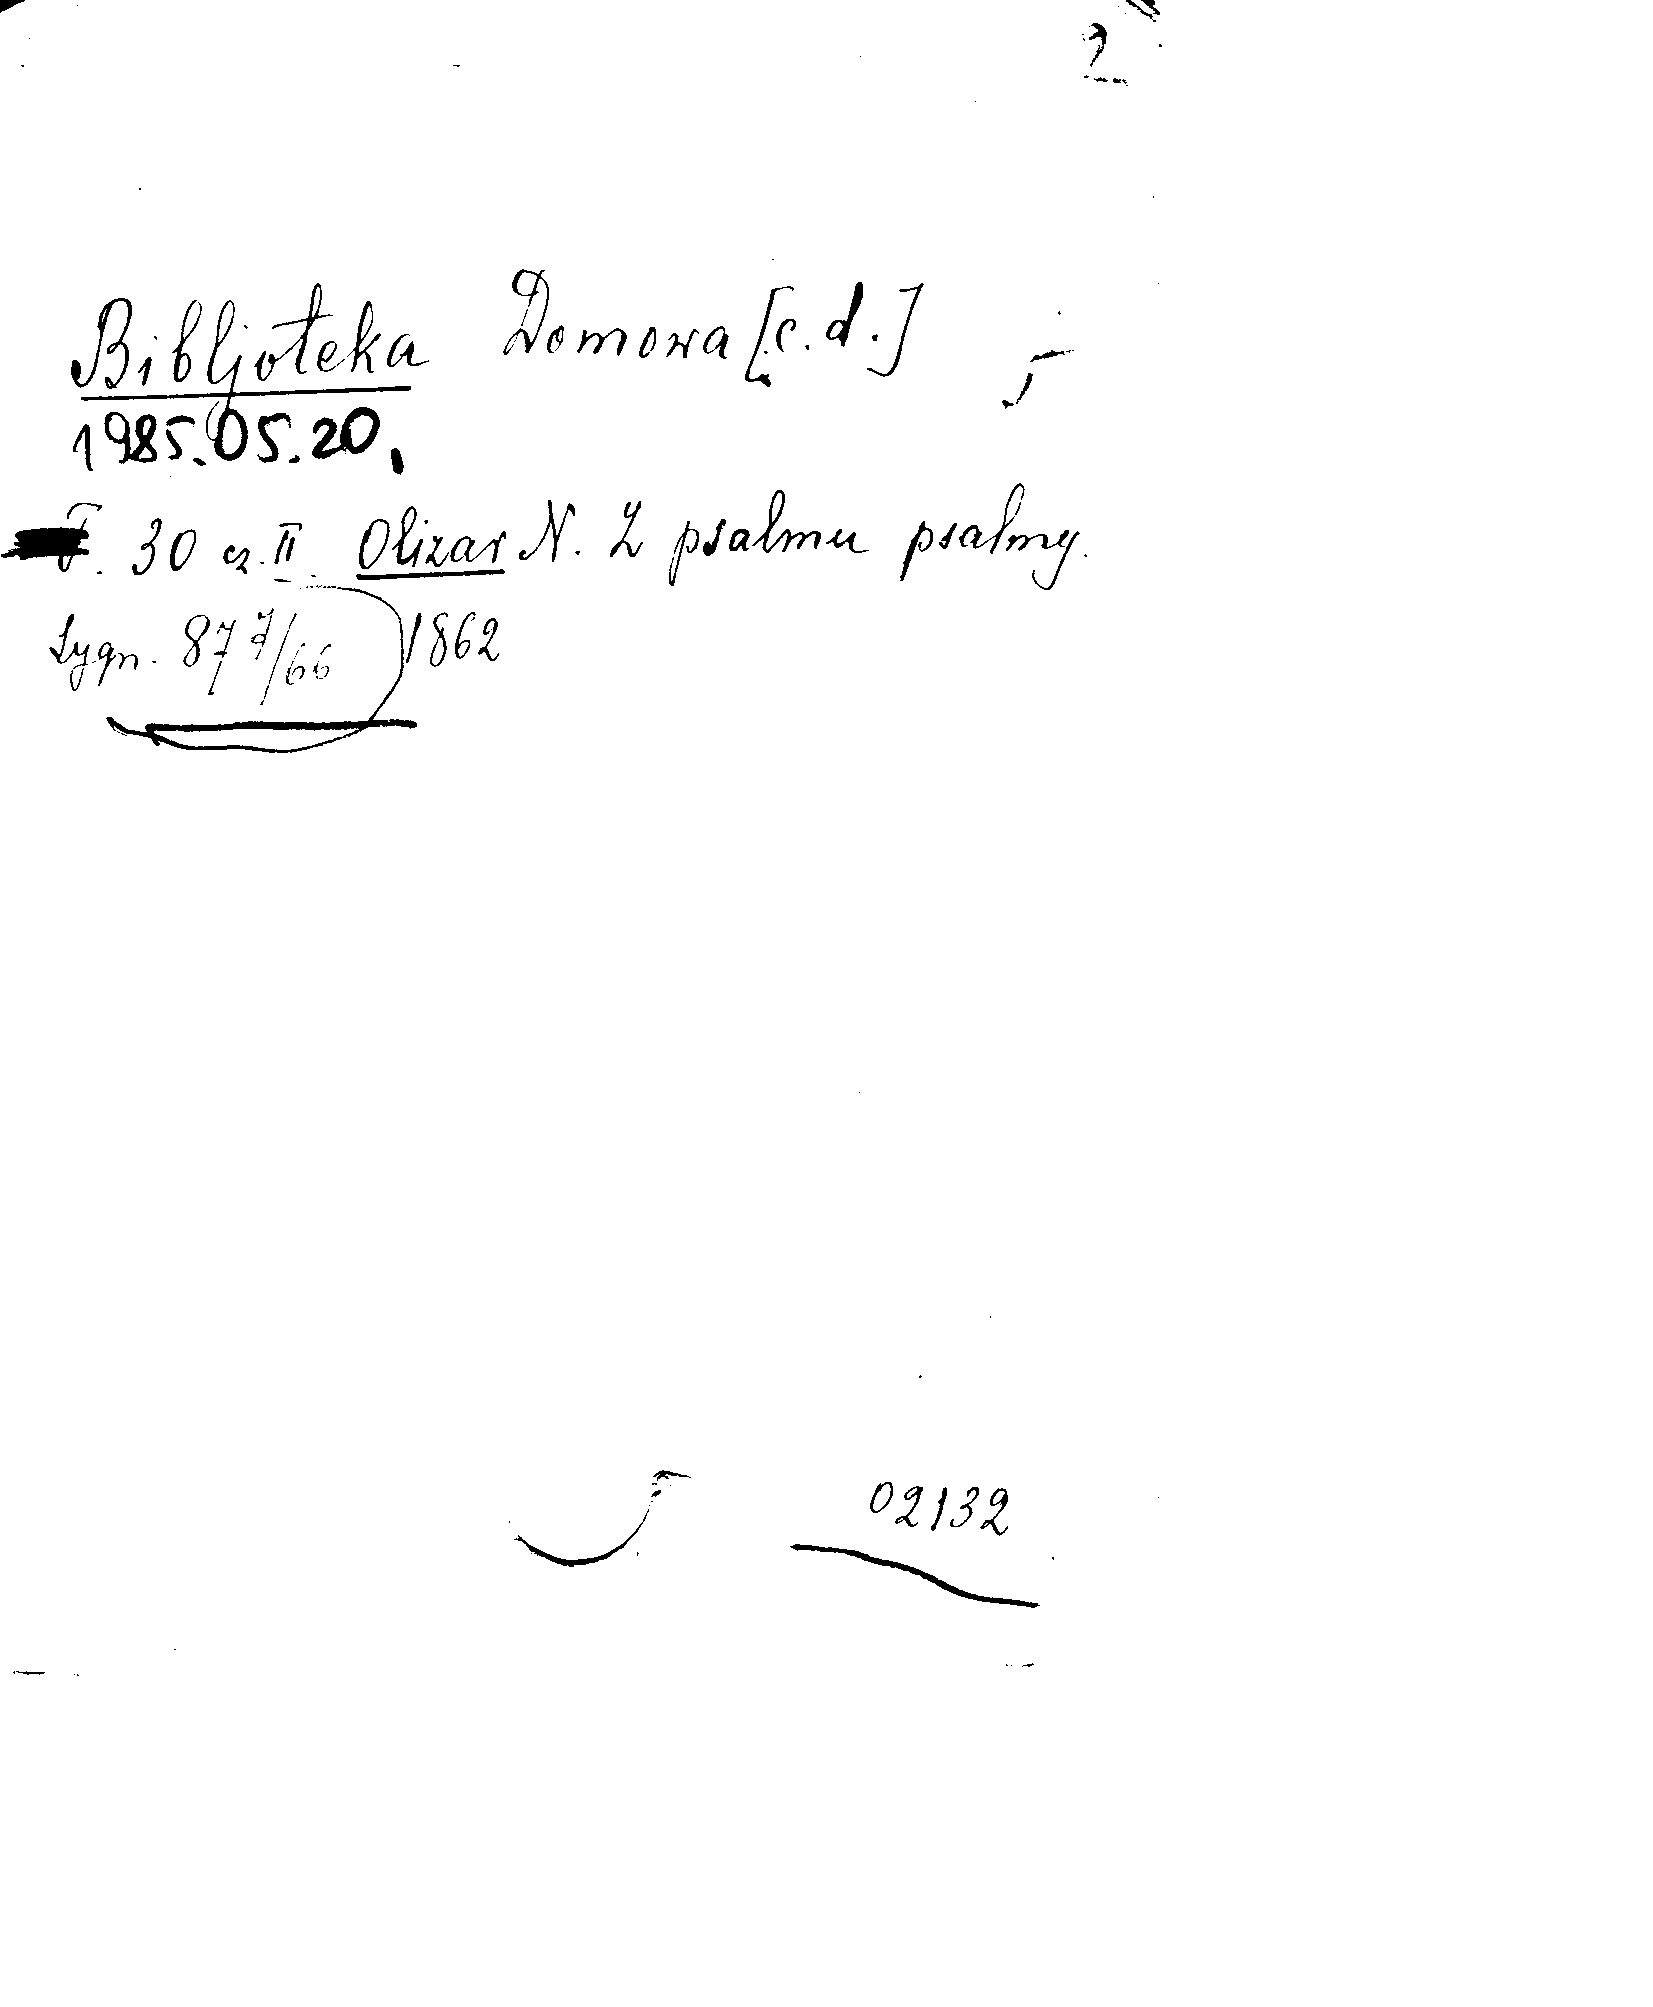 2
Bibljoteka Domowa [c.d.] 5
1985.05.20.
T. 30 cz. II Olizar N. Z psalmu psalmy.
Sygn. 87 7/66 1862
02132